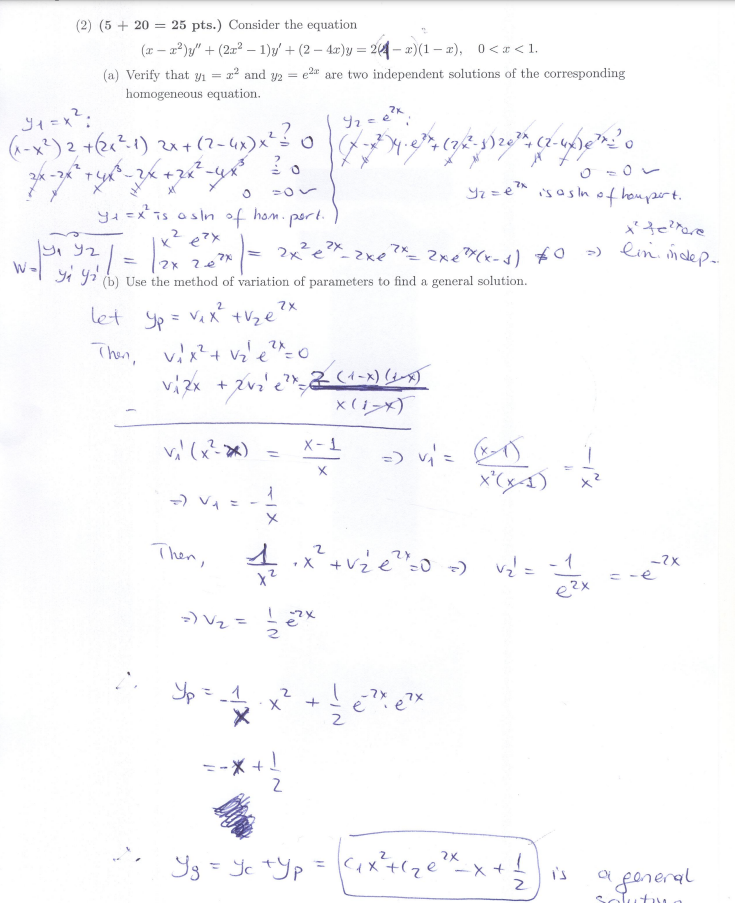 (2) (5 + 20 = 25 pts.) Consider the equation
(x − x²)y″ + (2x² − 1)y′ + (2 − 4x)y = 2(1 − x)(1 − x), 0 < x < 1.
(a) Verify that y₁ = x² and y₂ = e²ˣ are two independent solutions of the corresponding
homogeneous equation.
y₁ = x² :
(x−x²) 2 + (2x²−1) 2x + (2−4x) x² ≟ 0
2x − 2x² + 4x³ − 2x + 2x² − 4x³ ≟ 0
0 = 0 ✓
y₁ = x² is a sln of hom. part.
y₂ = e²ˣ :
(x−x²) 4·e²ˣ + (2x²−1) 2e²ˣ + (2−4x) e²ˣ ≟ 0
0 = 0 ✓
y₂ = e²ˣ is a sln of hom part.
W = |y₁ y₂; y₁′ y₂′| = |x² e²ˣ; 2x 2e²ˣ| = 2x²e²ˣ − 2xe²ˣ = 2xe²ˣ(x−1) ≠ 0 ⇒ x² & e²ˣ are lin. indep.
(b) Use the method of variation of parameters to find a general solution.
Let yp = v₁x² + v₂e²ˣ
Then, v₁′x² + v₂′e²ˣ = 0
v₁′2x + 2v₂′e²ˣ = 2(1−x)(1−x) / x(1−x)
−
v₁′(x²−x) = (x−1)/x ⇒ v₁′ = (x−1) / x²(x−1) = 1/x²
⇒ v₁ = −1/x
Then, 1/x² · x² + v₂′e²ˣ = 0 ⇒ v₂′ = −1/e²ˣ = −e⁻²ˣ
⇒ v₂ = ½ e⁻²ˣ
∴ yp = −1/x · x² + ½ e⁻²ˣ · e²ˣ
= −x + ½
∴ yg = yc + yp = c₁x² + c₂e²ˣ − x + ½ is a general
solution